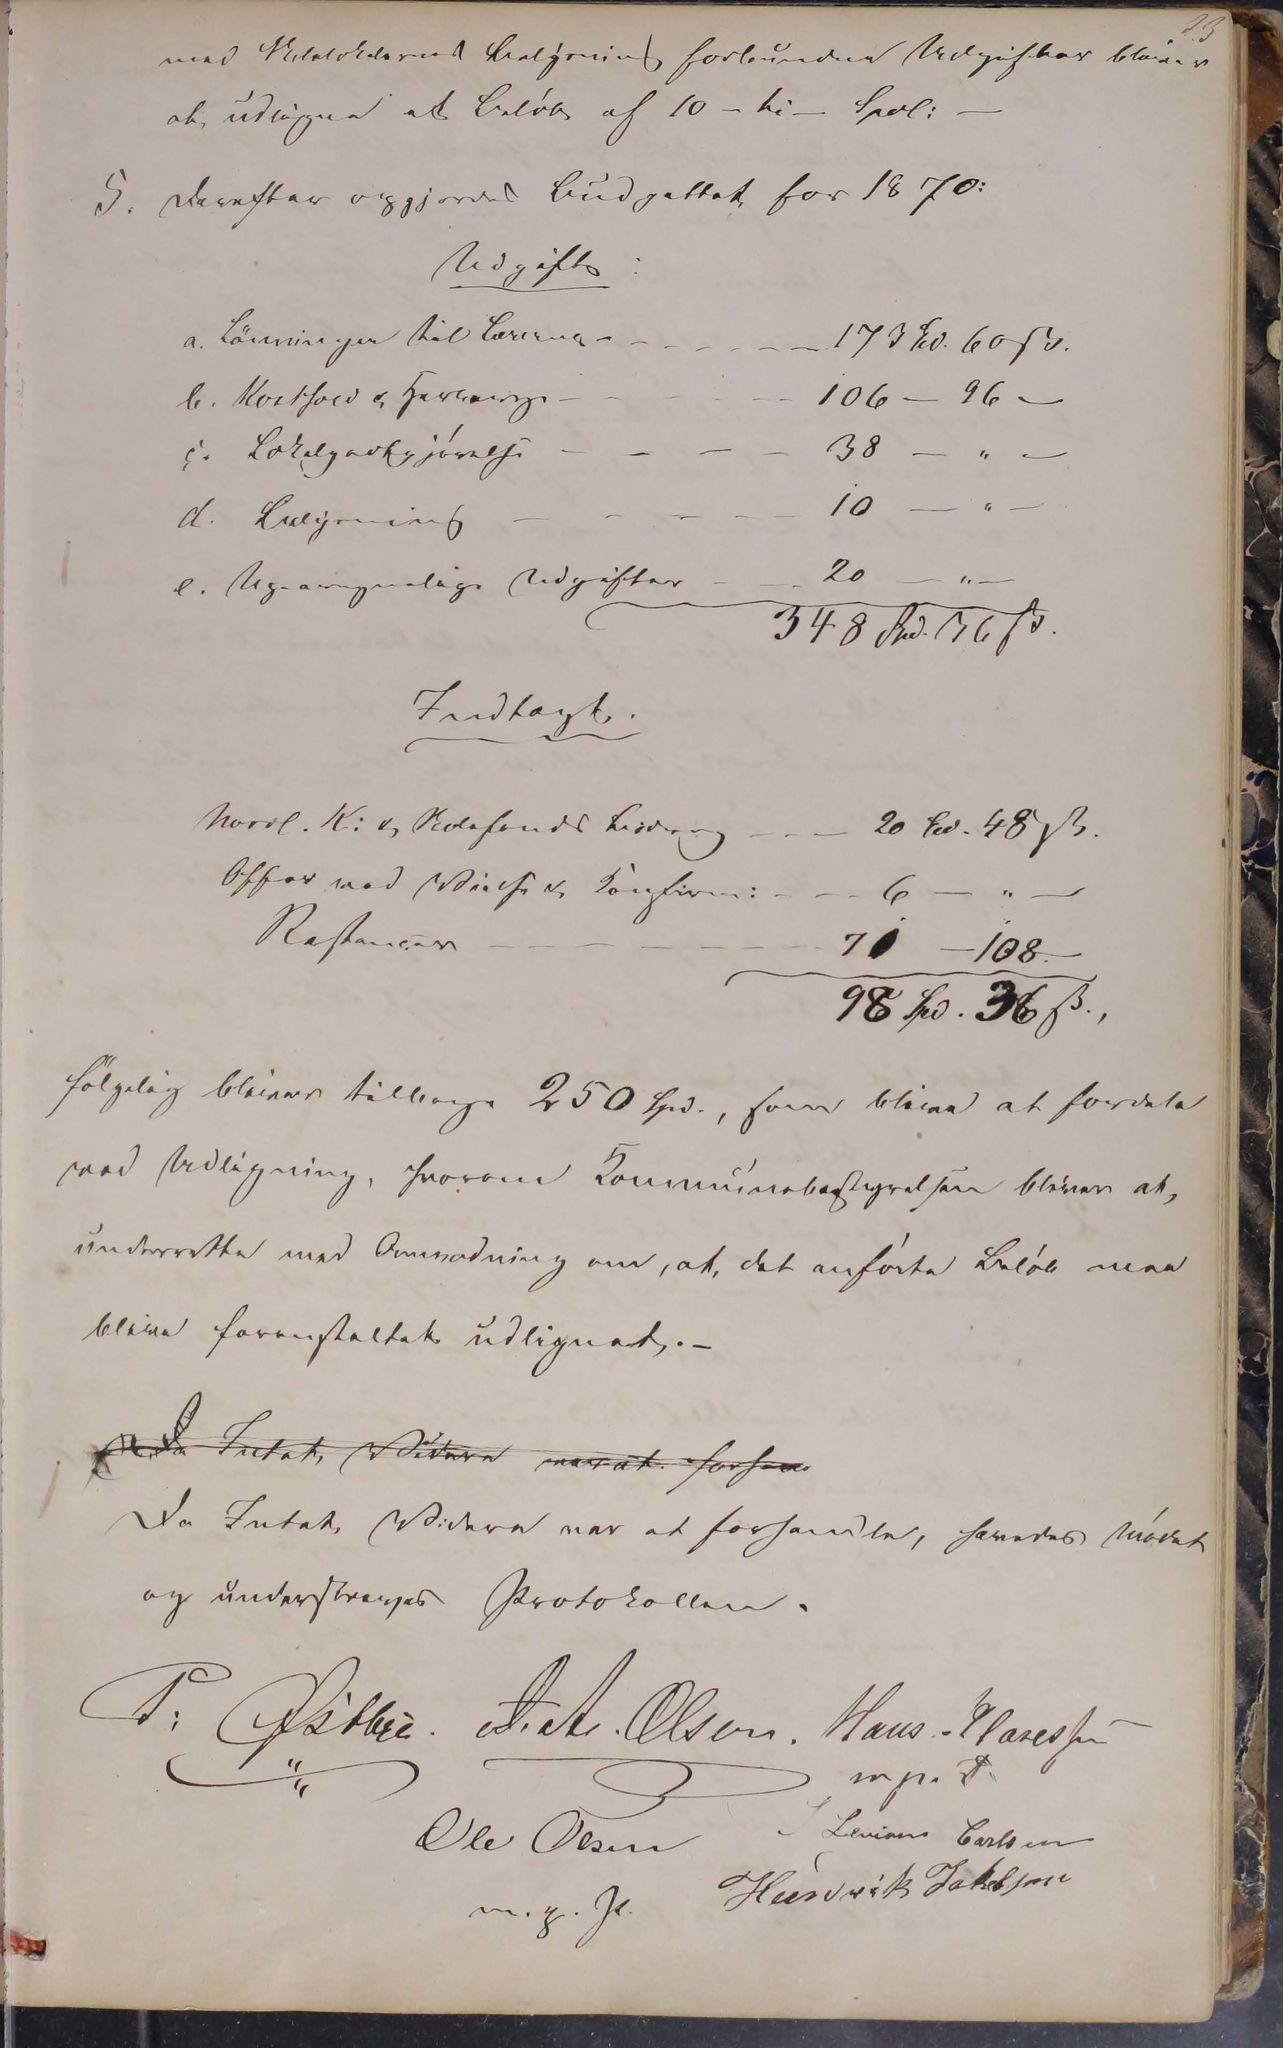 23
med Skolelokalernes Belysning forbundne Udgifter bliver
at udligne et Beløb af 10 - ti - Spd: -
5. Derefter opgjordes Budgettet for 1870:
Udgift:
a. Lönninger til Lærerne - - - - 173 Spd. 60 ß.
b. Kosthold & Herberge - - - - 106 - 96 -
c. Lokalgodtgjörelse - - - - 38 - " -
d. Belysning - - - - - 10 - " -
e. Uperegnelige Udgifter - - - 20 - " -
348 Spd. 36 ß.
Indtægt.
Nordl. K: & Skolefonds Bidrag - - - 20 Spd. 48 ß.
Offer ved Vielse & Konfirm: - - - 6 - " -
Restancer - - - - - - 71 - 108 -
98 Spd. 36 ß.,
fölgelig bliver tilbage 250 Spd., som bliver at fordele
ved Udligning, hvorom Kommunebestyrelsen bliver at
underrette med Anmodning om, at det anförte Belöb maa
blive foranstaltet udlignet. -
Da Intet Videre var at forhan
Da Intet Videre var at forhandle, hævedes Mödet
og underskreves Protokollen.
P: Østbye. Olsen. Hans
m.p.
Ole Olsen Carlsen
m. p. P. Hendrik Jakobsen